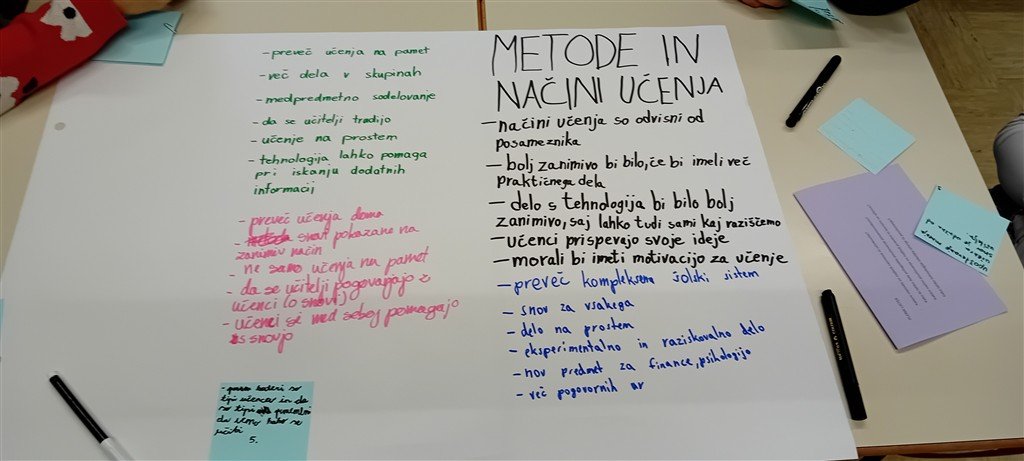 METODE IN
NAČINI UČENJA
- načini učenja so odvisni od
posameznika
- bolj zanimivo bi bilo, če bi imeli več
praktičnega dela
- delo s tehnologija bi bilo bolj
zanimivo, saj lahko tudi sami kaj raziščemo
- učenci prispevajo svoje ideje
- morali bi imeti motivacijo za učenje
- preveč kompleksen šolski sistem
- snov za vsakega
- delo na prostem
- eksperimentalno in raziskovalno delo
- nov predmet za finance, psihologijo
- več pogovornih ur
- preveč učenja na pamet
- več dela v skupinah
- medpredmetno sodelovanje
- da se učitelji trudijo
- učenje na prostem
- tehnologija lahko pomaga
pri iskanju dodatnih
informacij
- preveč učenja doma
- snov pokazane na
zanimiv način
- ne samo učenja na pamet
- da se učitelji pogovarjajo z
učenci (o snovi)
- učenci si med seboj pomagajo
s snovjo
kateri so
tipi učencev in da
so tipi
da vemo kako se
učiti
5.